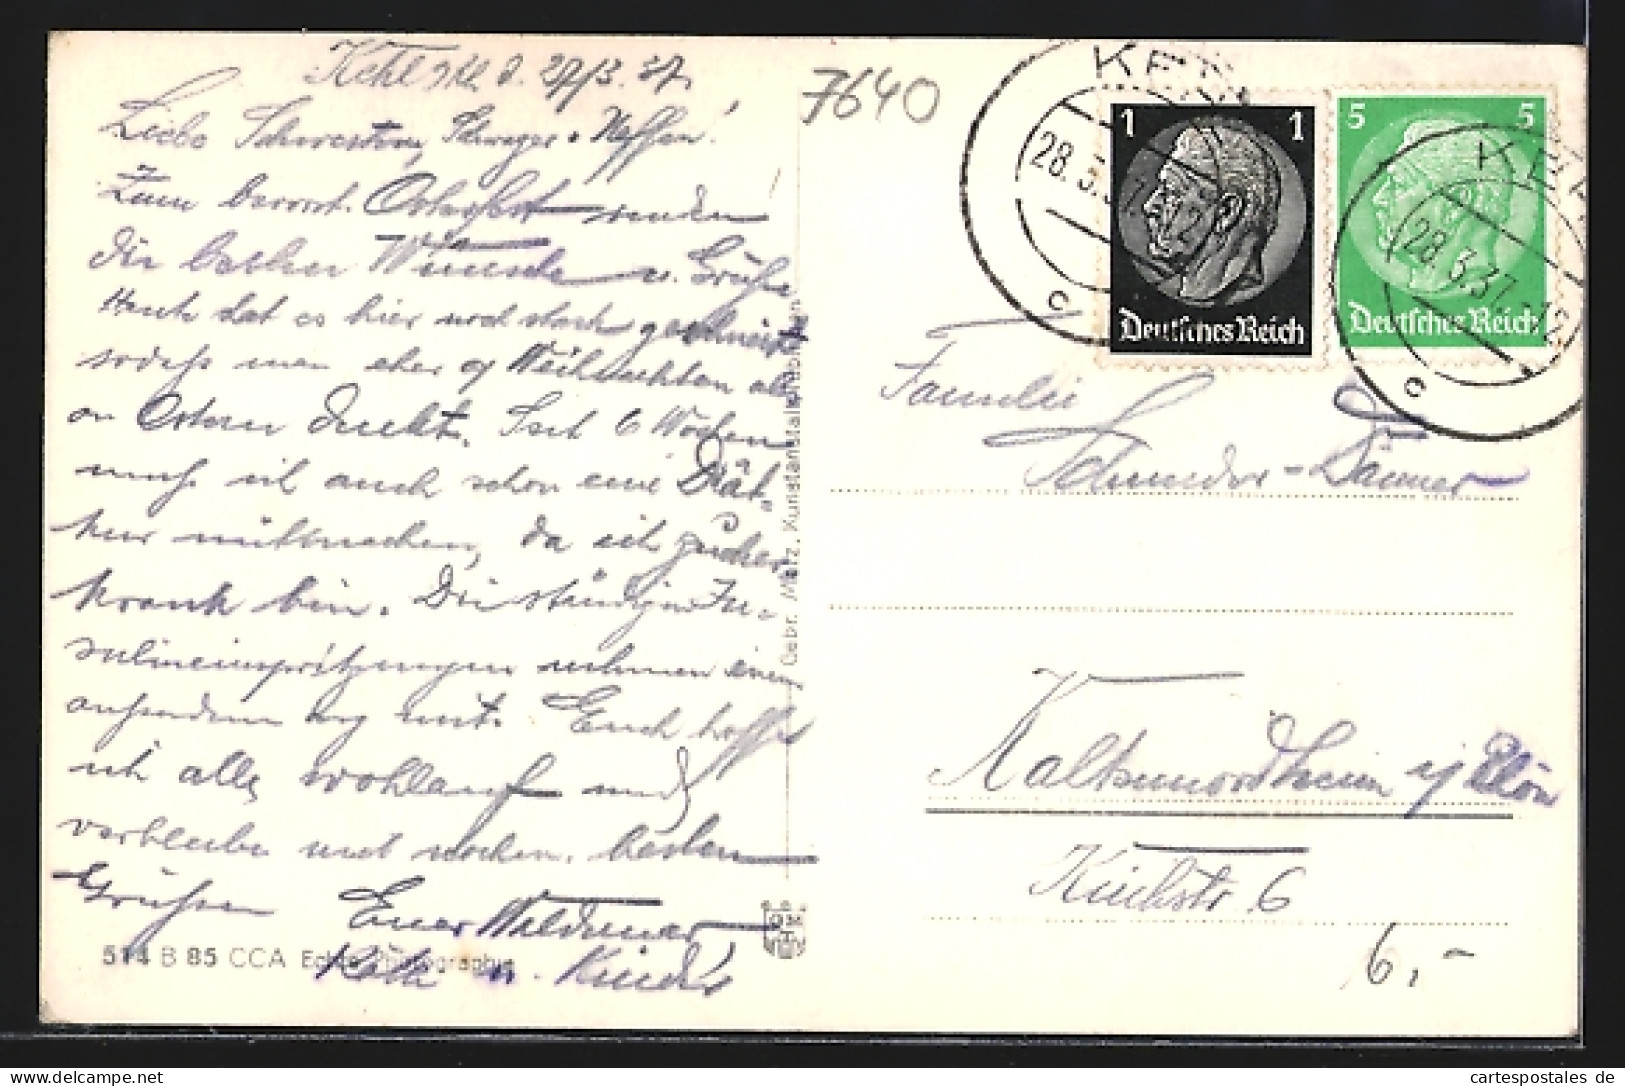 Kehl a/Rh. d. 27/3. 37.
Liebe Schwestern, Schwager u. Neffen!
Zum bevorst. Osterfest senden
die besten Wünsche u. Grüße
Heute hat es hier noch stark geschneit
sodaß man eher an Weihnachten als
an Ostern denkt. Seit 6 Wochen
muß ich auch schon eine Diät-
kur mitmachen, da ich zucker-
krank bin. Die ständigen In-
sulineinspritzungen nehmen einen
außerdem arg mit. Euch hoffe
ich alle wohlauf und
verbleibe mit nochm. besten
Grüßen Euer Waldemar
Käthe u. Kinder
514 B 85 CCA Echte Photographie
Gebr. Metz, Kunstanstalt,
7640
KEHL
28.3.37.-12
c
1 1
Deutsches Reich
5 5
Deutsches Reich
KEHL
28.3.37.-12
c
Familie
Schneider-Danner
Kaltennordheim a/ Rhön
Kirchstr. 6
6,-
www.cartespostales.de